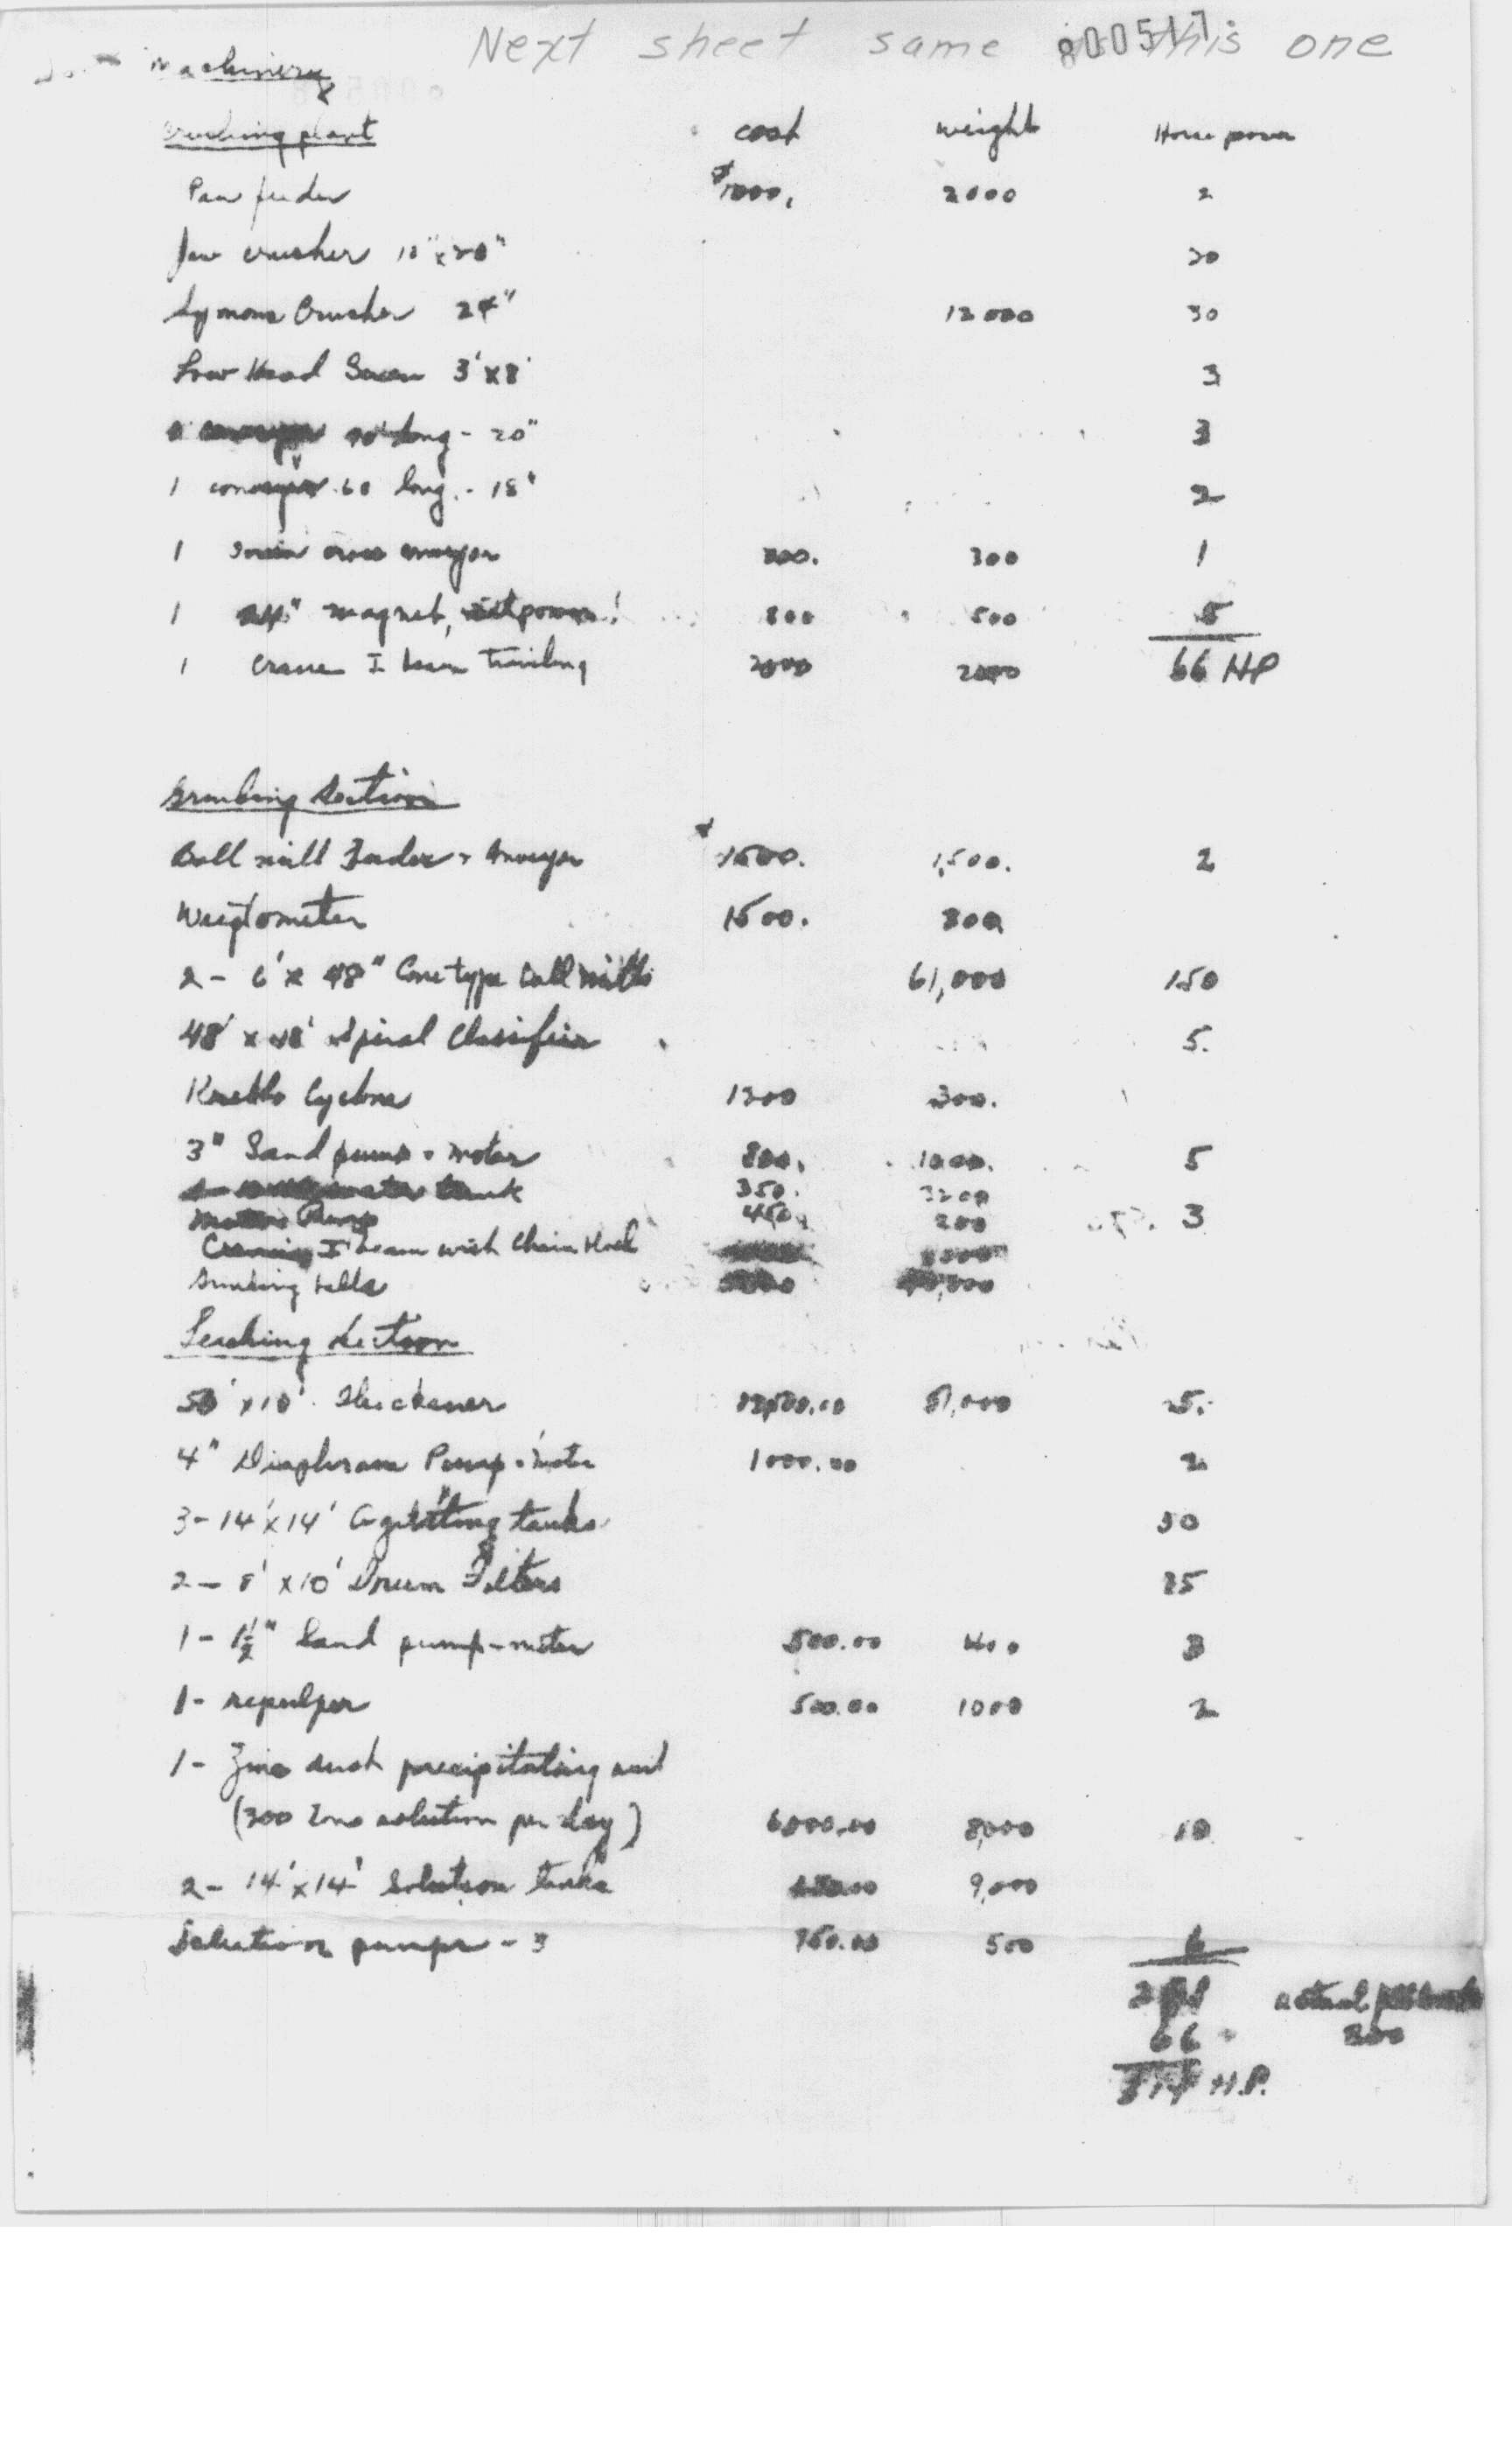 Next sheet same as this one
800517
Machinery
Crushing plant cost weight Horse power
Pan feeder $1000. 2000 2
Jaw crusher 10" x 20" 20
Symons Crusher 24" 12000 30
Low Head Screen 3' x 8' 3
long - 20" 3
1 conveyor 60 long - 18" 2
1 cross conveyor 300 1
1 24" magnet, 800 500 5
1 Crane I beam 2000 2000 66 HP
Grinding Section
Ball mill Feeder + Conveyor $1500. 1,500. 2
Weigtometer 1500. 800
2 - 6' x 48" Cone type ball mills 61,000 150
48" x Spiral Classifier 5.
Krebbs Cyclone 1200 300.
3" Sand pump + motor 800. 1000. 5
water tank 350.
Pump 450 200 3
I beam with Chain block
Grinding balls
Leaching Section
50' x 10' Thickener 51,000 5.
4" Diaphram Pump + motor 1000.00 2
3 - 14' x 14' Agitating tanks 30
2 - 8' x 10' Drum Filters
1 - 1½" Sand pump - motor 500.00 400 3
1 - repulper 500.00 1000 2
1 - Zinc dust precipitating unit
(300 Tons solution per day) 6000.00 8,000 10
2 - 14' x 14' Solution tanks 9,000
Solution pumps - 3 750.00 500 6
actual
66 300
H.P.